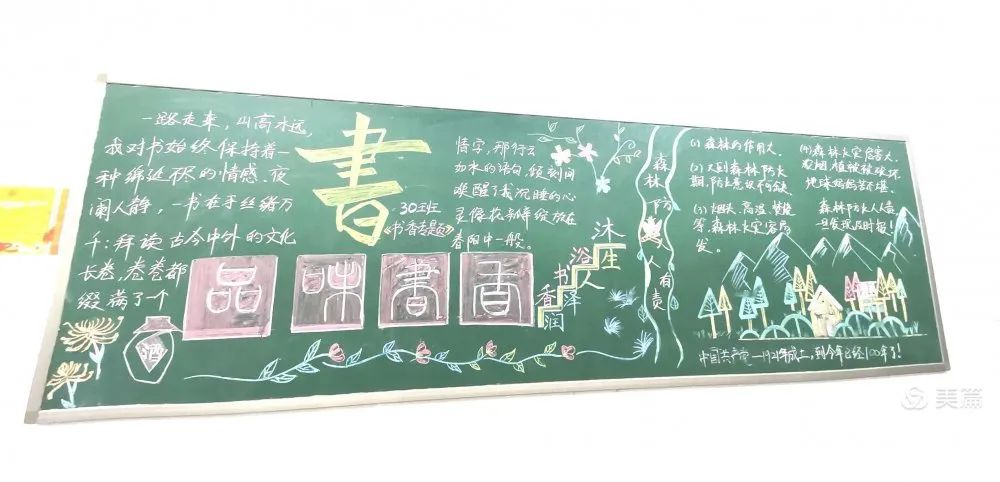 一路走来，山高水远，
我对书始终保持着一
种绵延伏的情感、夜
阑人静，一书在手丝绪万
千：拜读古今中外的文化
长卷，卷卷都
缀满了一个
酒
書
30班
《书香专题》
情字，那行云
如水的语句，倾刻间
唤醒了我沉睡的心
灵像花般绽放在
春阳中一般。
品味書香
沐浴书香
润泽人生
森林防火
人人有责
(1) 森林的作用大。
(2) 又到森林防火
期，防火意识不可缺
(3) 烟头、高温、焚烧
等，森林火灾容易
发。
(4) 森林火灾危害大，
植被被破坏
地球妈妈苦不堪。
森林防火人人责
旦发现及时报！
中国共产党一1921年成立，到今年已经100年了！
美篇